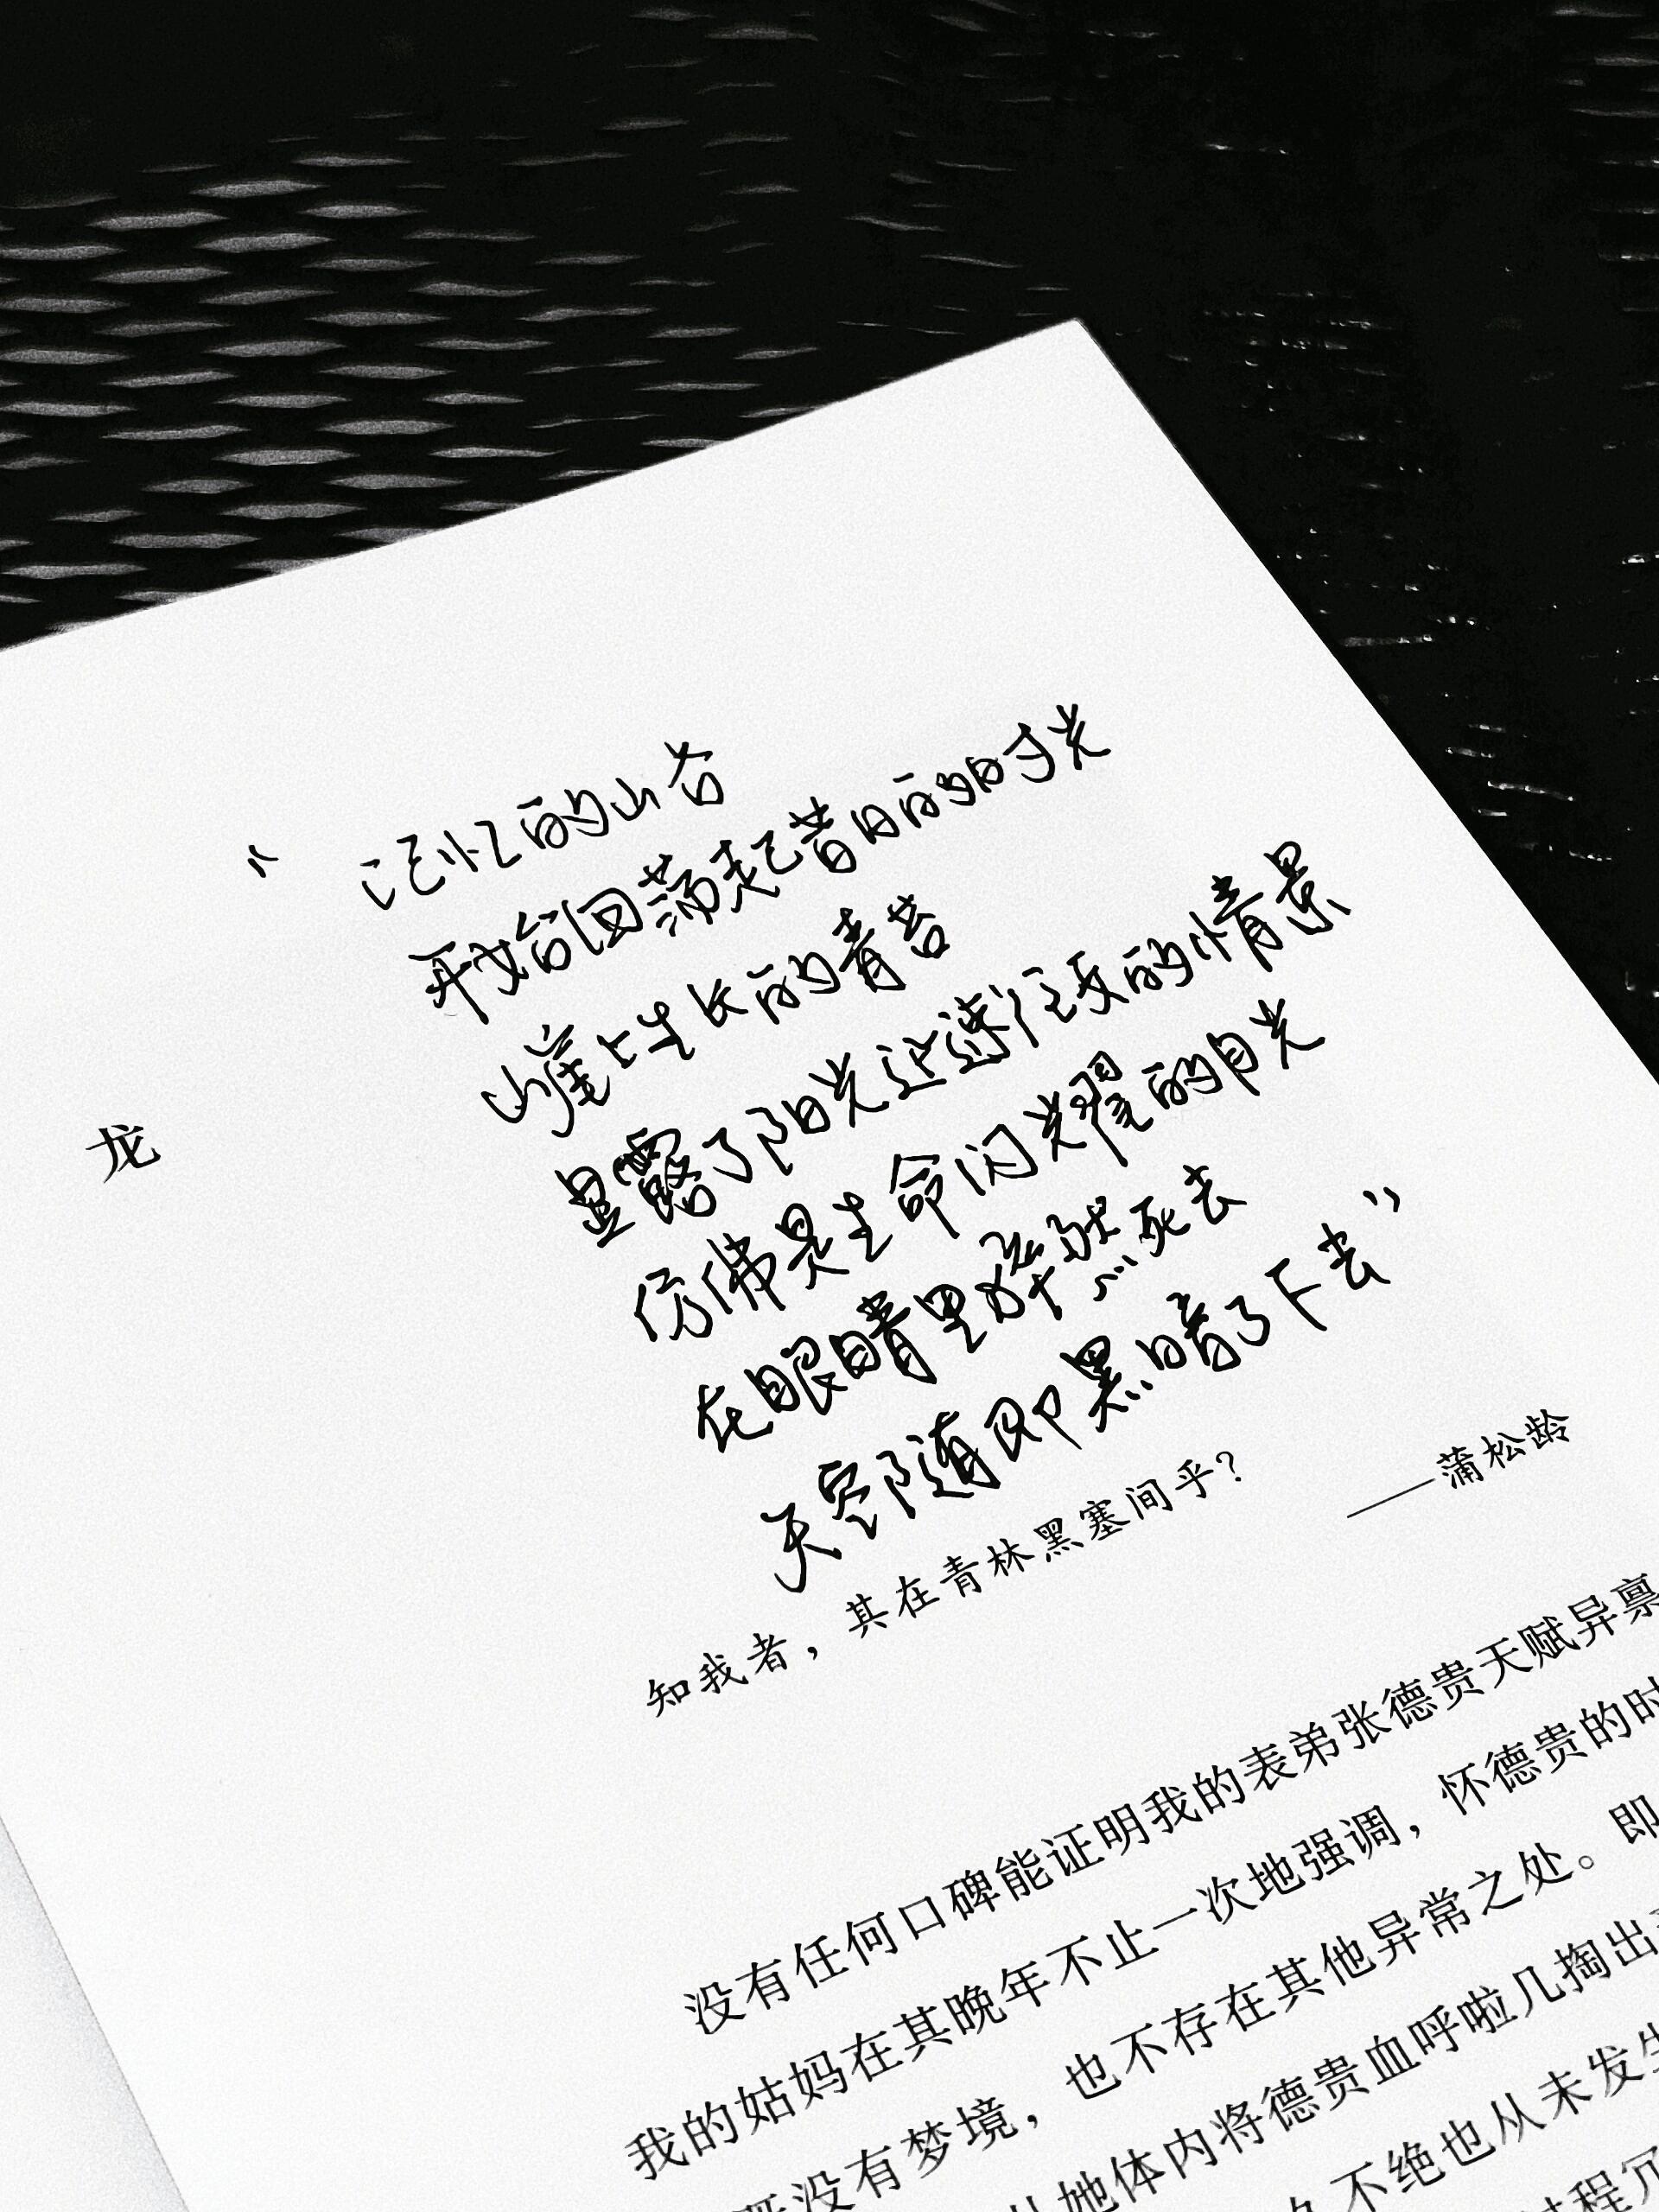 “ 记忆的山谷
开始回荡起昔日的时光
崖上生长的青苔
显露了阳光迷往的情景
仿佛是生命闪耀的目光
在眼睛里猝然死去
天空随即黑暗了下去”
龙
知我者，其在青林黑塞间乎？
——蒲松龄
没有任何口碑能证明我的表弟张德贵天赋异禀
我的姑妈在其晚年不止一次地强调，怀德贵的时
没有梦境，也不存在其他异常之处。即
她体内将德贵血呼啦几掏出
不绝也从未发生
过程冗